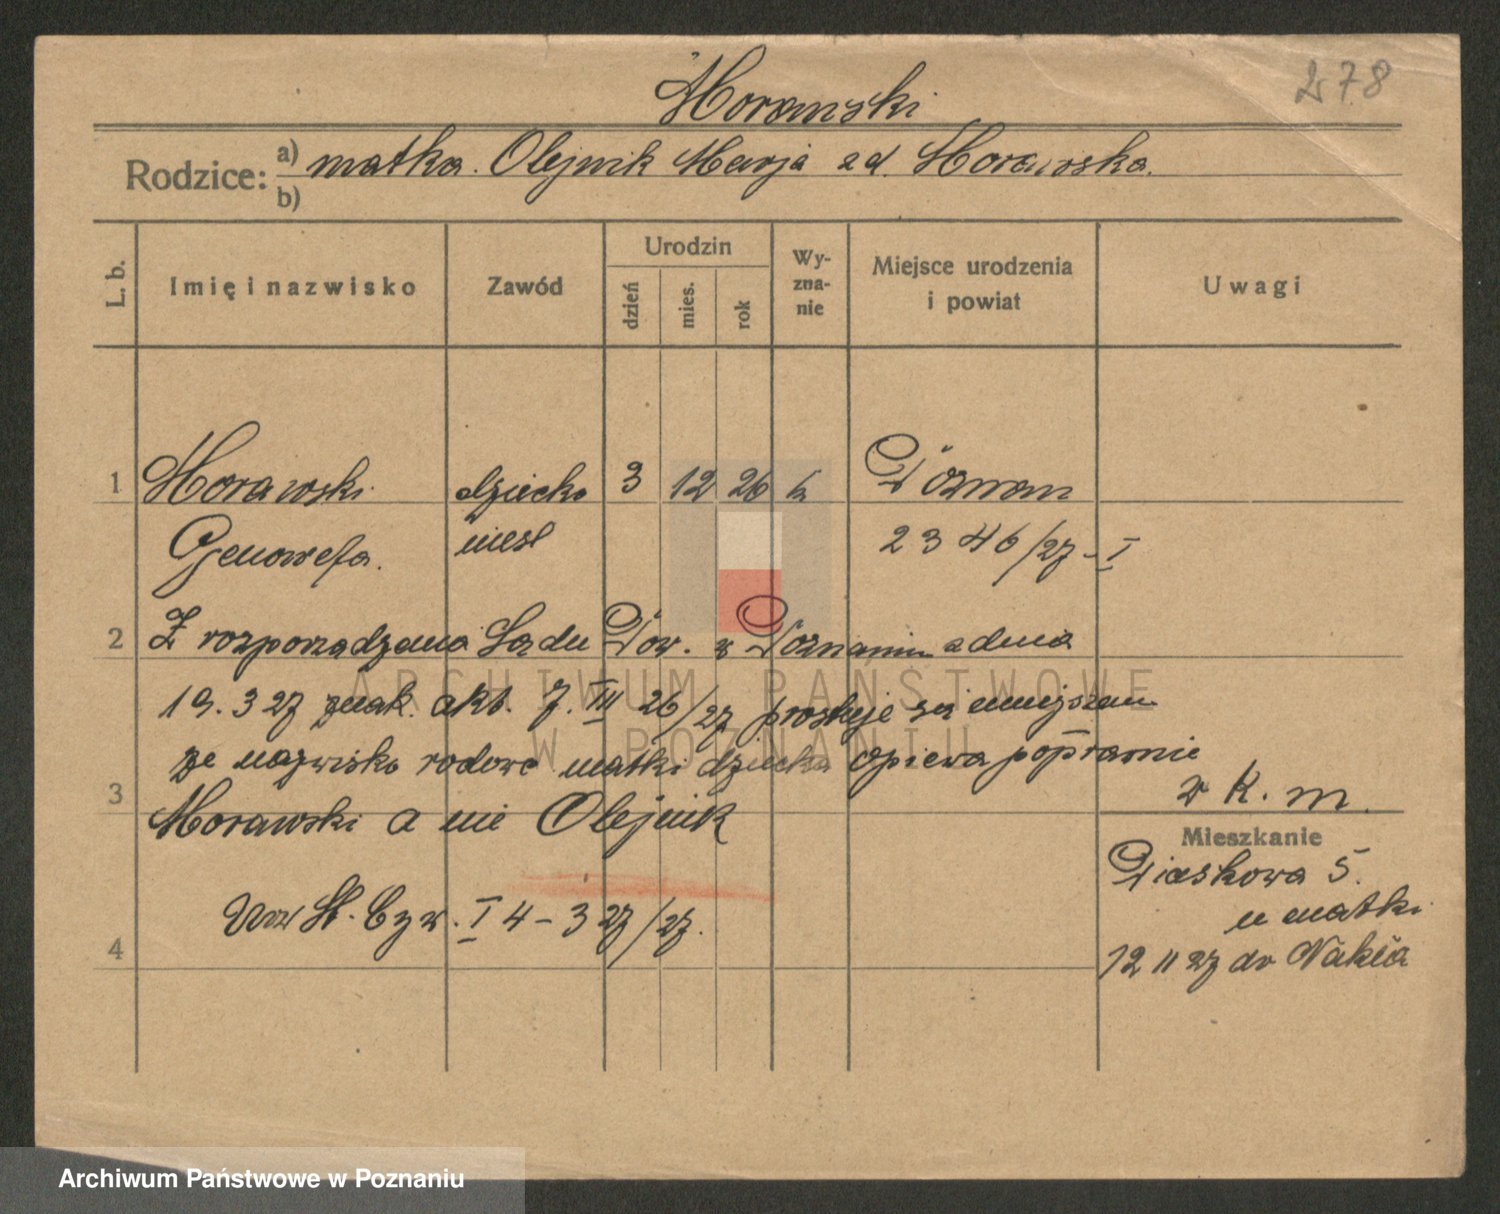 Morawski
278
Rodzice: a) matka. Olejnik Marja zd. Morawska.
b)
L. b.
Imię i nazwisko
Zawód
Urodzin
dzień
mies.
rok
Wy-
zna-
nie
Miejsce urodzenia
i powiat
Uwagi
1 Morawski dziecko 3 12 26 k Poznań
Genowefa. nieśl 2346/27-I
2 Z rozporządzenia Sądu Pow. w Poznaniu z dnia
19.3 27 znak. akt. 7. III 26/27 prostuje się niniejszem
że nazwisko rodowe matki dziecka opiewa poprawnie
3 Morawski a nie Olejnik
St. Cyw. I 4 - 3 27/27.
4
w K. m.
Mieszkanie
Piaskowa 5.
u matki
12 11 27 do Nakła
ARCHIWUM PAŃSTWOWE
W POZNANIU
Archiwum Państwowe w Poznaniu